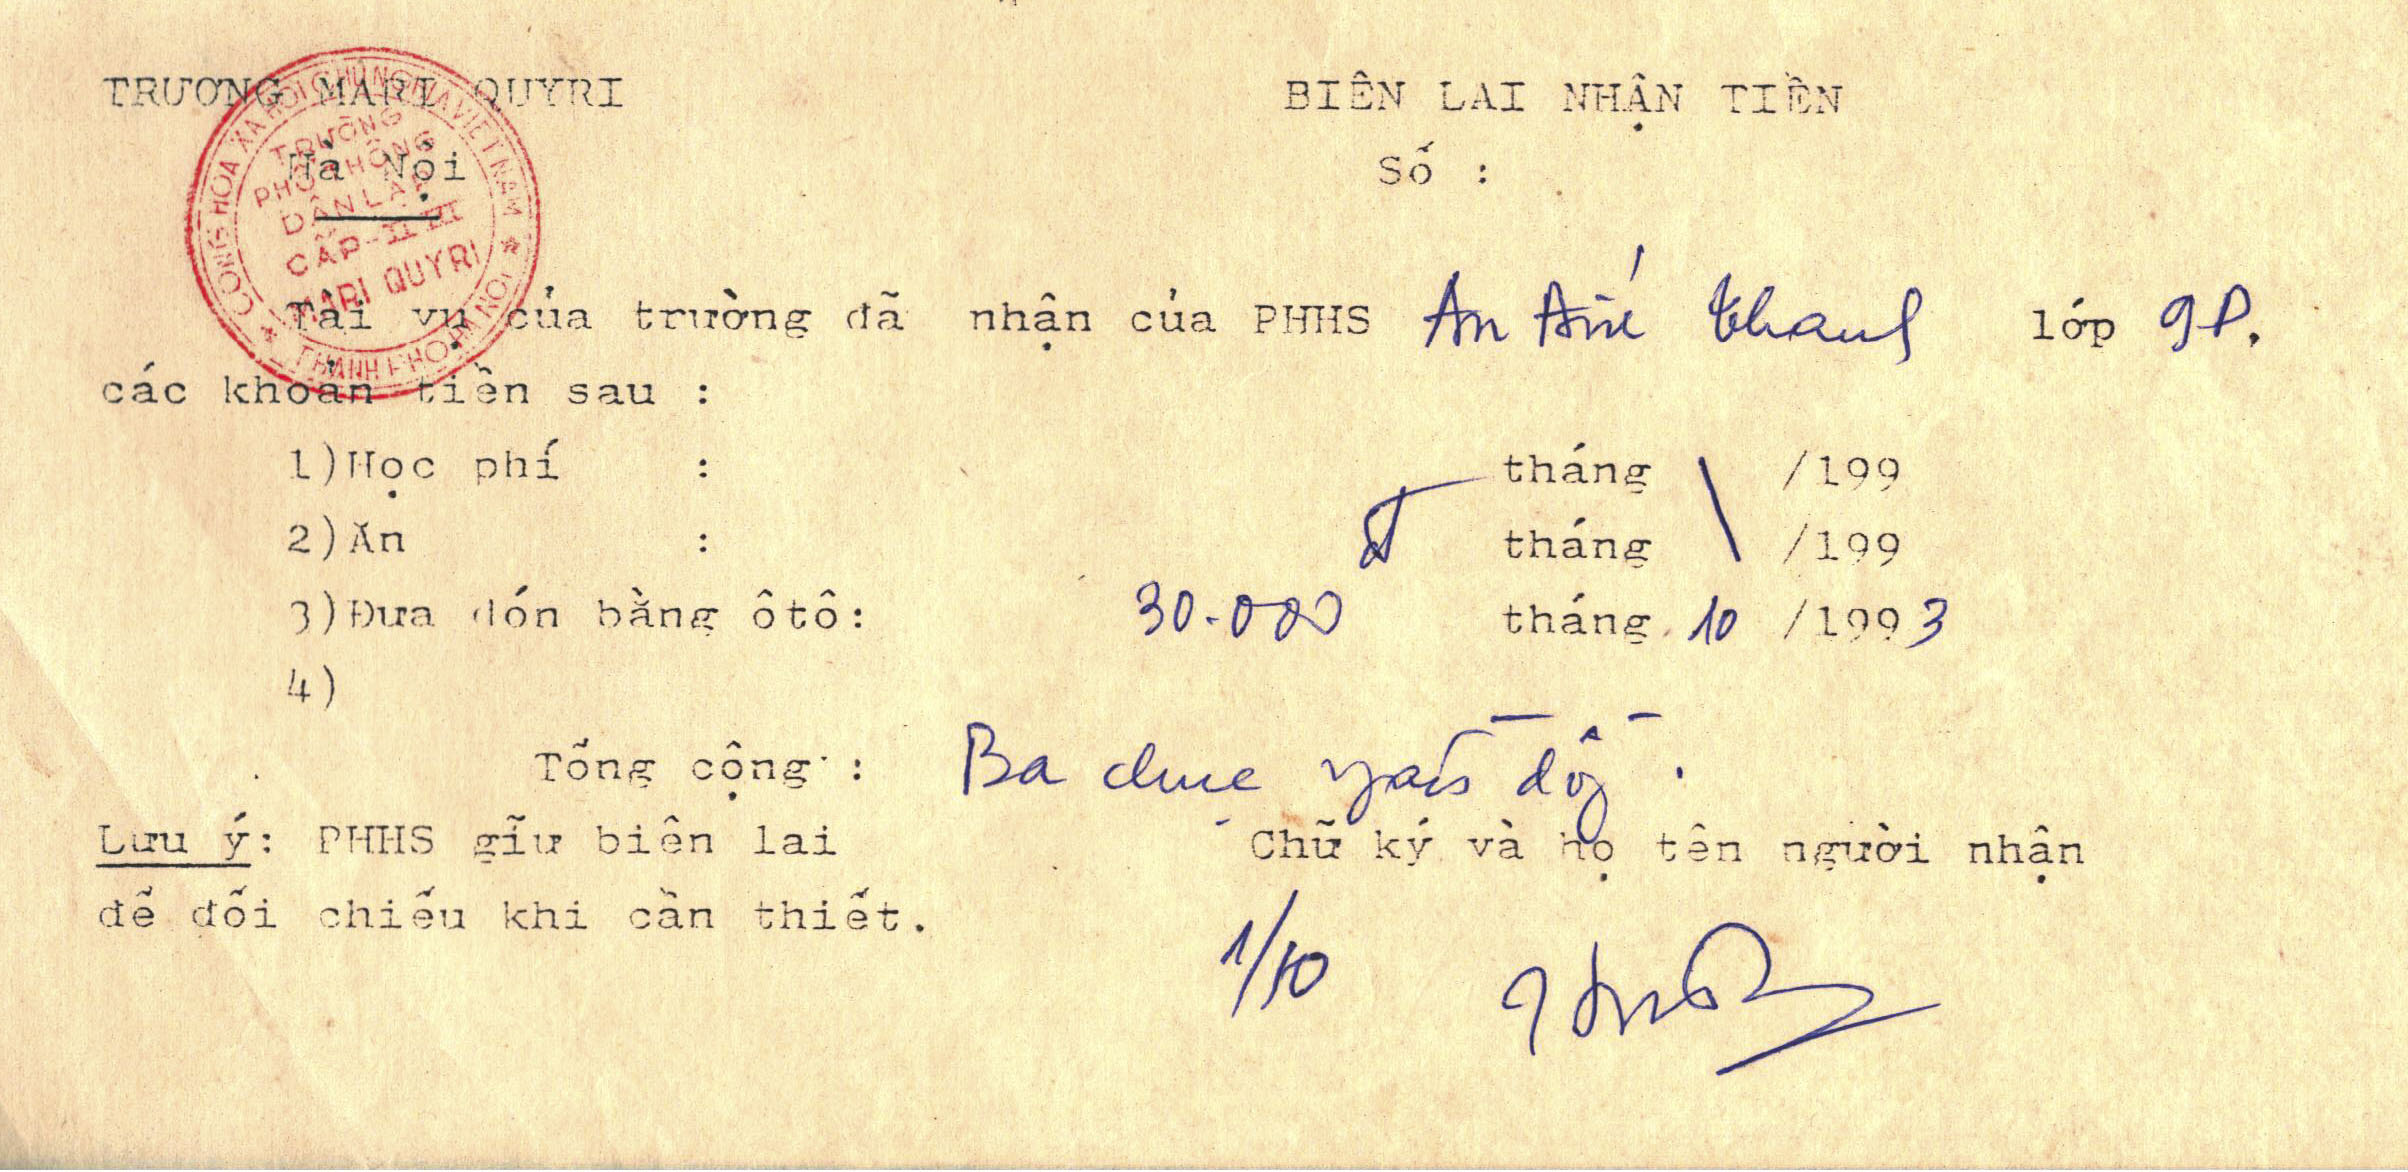 TRƯƠNG MARI QUYRI
Hà Nội
BIÊN LAI NHẬN TIỀN
Số :
CỘNG HÒA XÃ HỘI CHỦ NGHĨA VIỆT NAM
THÀNH PHỐ HÀ NỘI
TRƯỜNG
PHỔ THÔNG
DÂN LẬP
CẤP II-III
MARI QUYRI
Tài vụ của trường đã nhận của PHHS An thanh lớp 9P.
các khoản tiền sau :
1)Học phí : tháng \ /199
2)Ăn : tháng \ /199
3)Đưa đón bằng ôtô: 30.000đ tháng 10 /1993
4)
Tổng cộng : Ba chục đồng.
Lưu ý: PHHS giữ biên lai
để đối chiếu khi cần thiết.
Chữ ký và họ tên người nhận
1/10